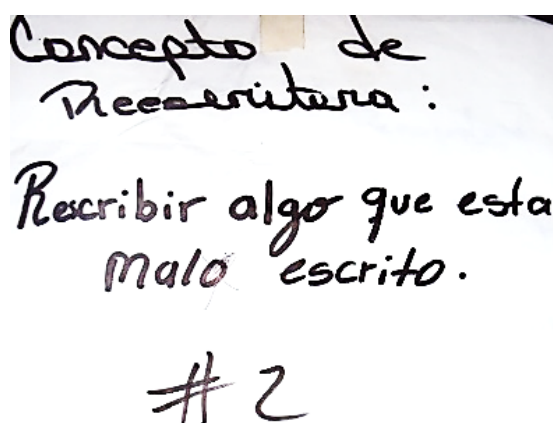 Concepto de
Reeescritura:
Rescribir algo que esta
malo escrito.
#2